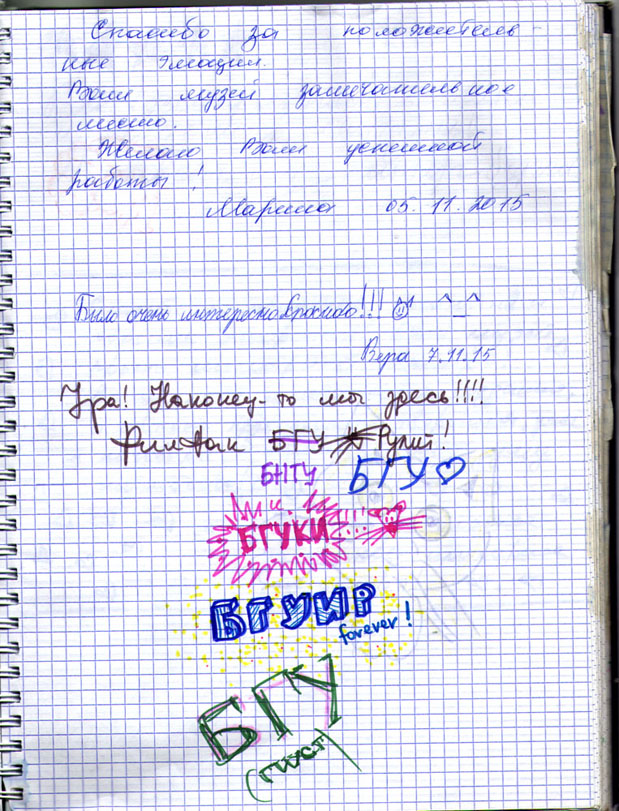 Спасибо за положитель-
ные эмоции.
Ваш музей замечательное
место.
Желаю Вам успешной
работы!
Марина 05.11.2015
Было очень интересно красиво!!! ^_^
Вера 7.11.15
Ура! Наконец-то мы здесь!!!!
БГУ Рулит!
БНТУ БГУ
и.
БГУКИ !!!
БГУИР
forever!
БГУ